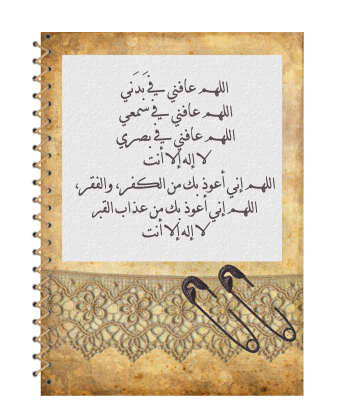 اللهم عافني في بَدَني
اللهم عافني في سَمعي
اللهم عافني في بصري
لا إله إلا أنت
اللهم إني أعوذ بك من الكفر، والفقر،
اللهم إني أعوذ بك من عذاب القبر
لا إله إلا أنت